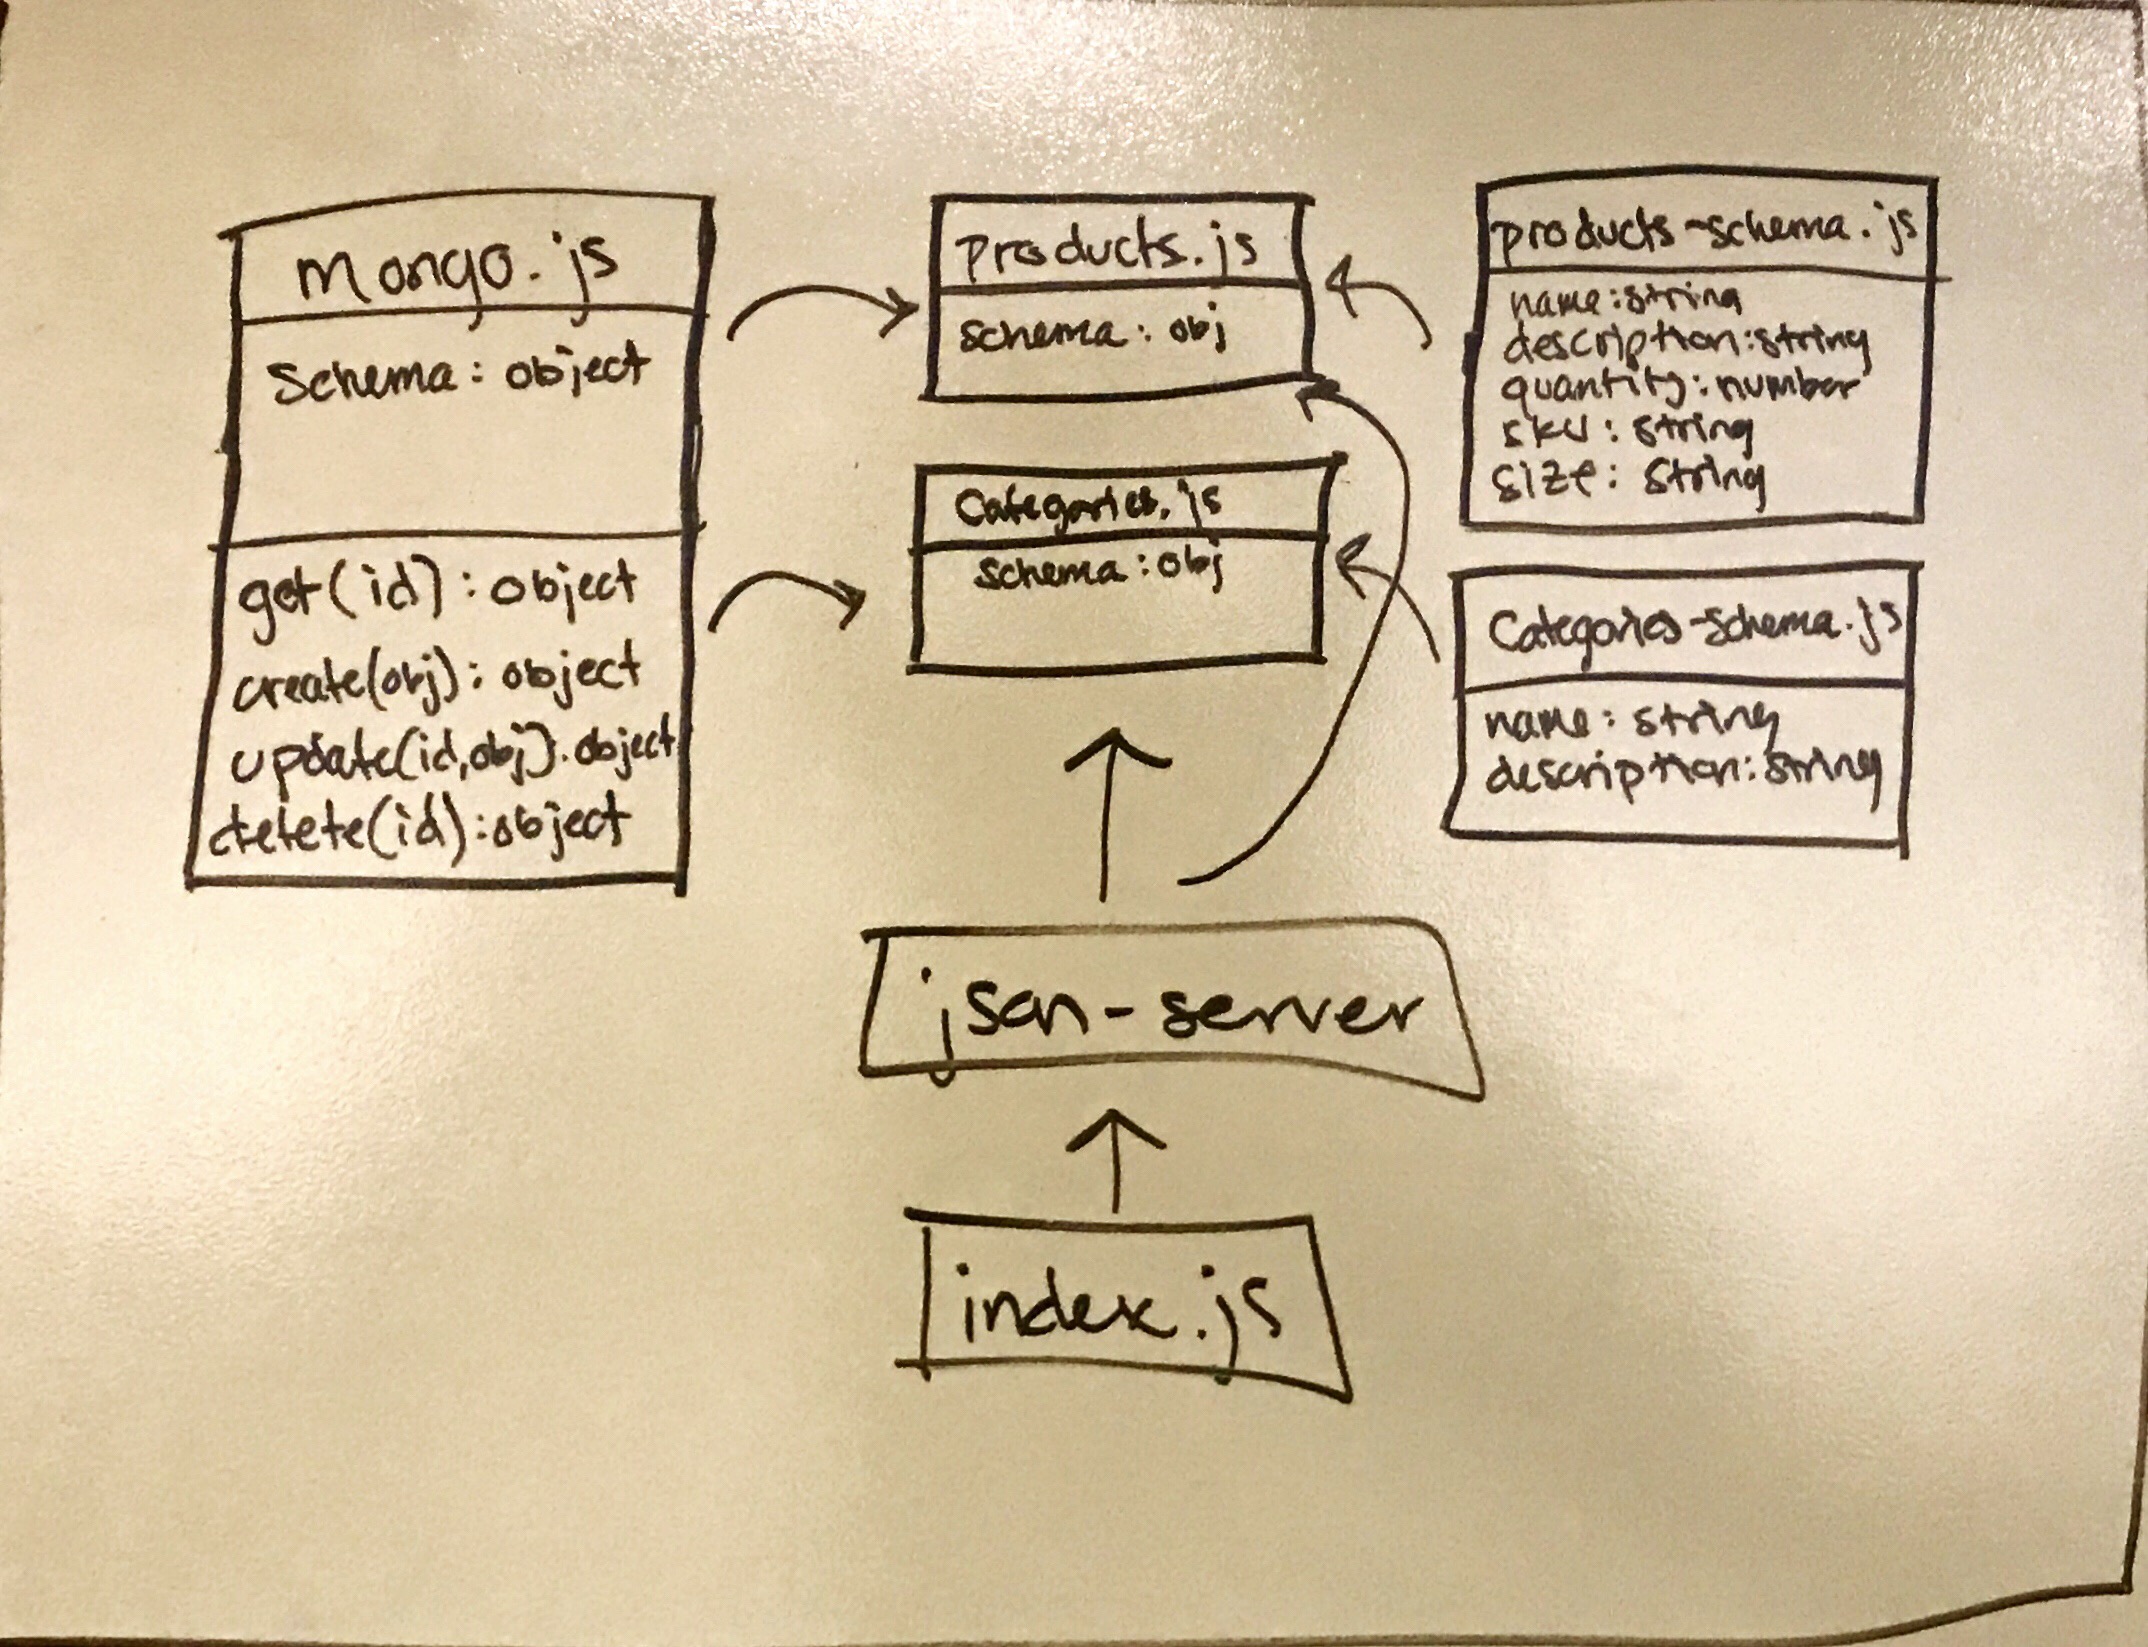 mongo.js
Schema: object
get(id): object
create(obj): object
update(id,obj):object
delete(id):object
products.js
schema: obj
Categories.js
Schema:obj
products-schema.js
name:string
description:string
quantity:number
sku: string
size: string
Categories-Schema.js
name: string
description:string
json-server
index.js